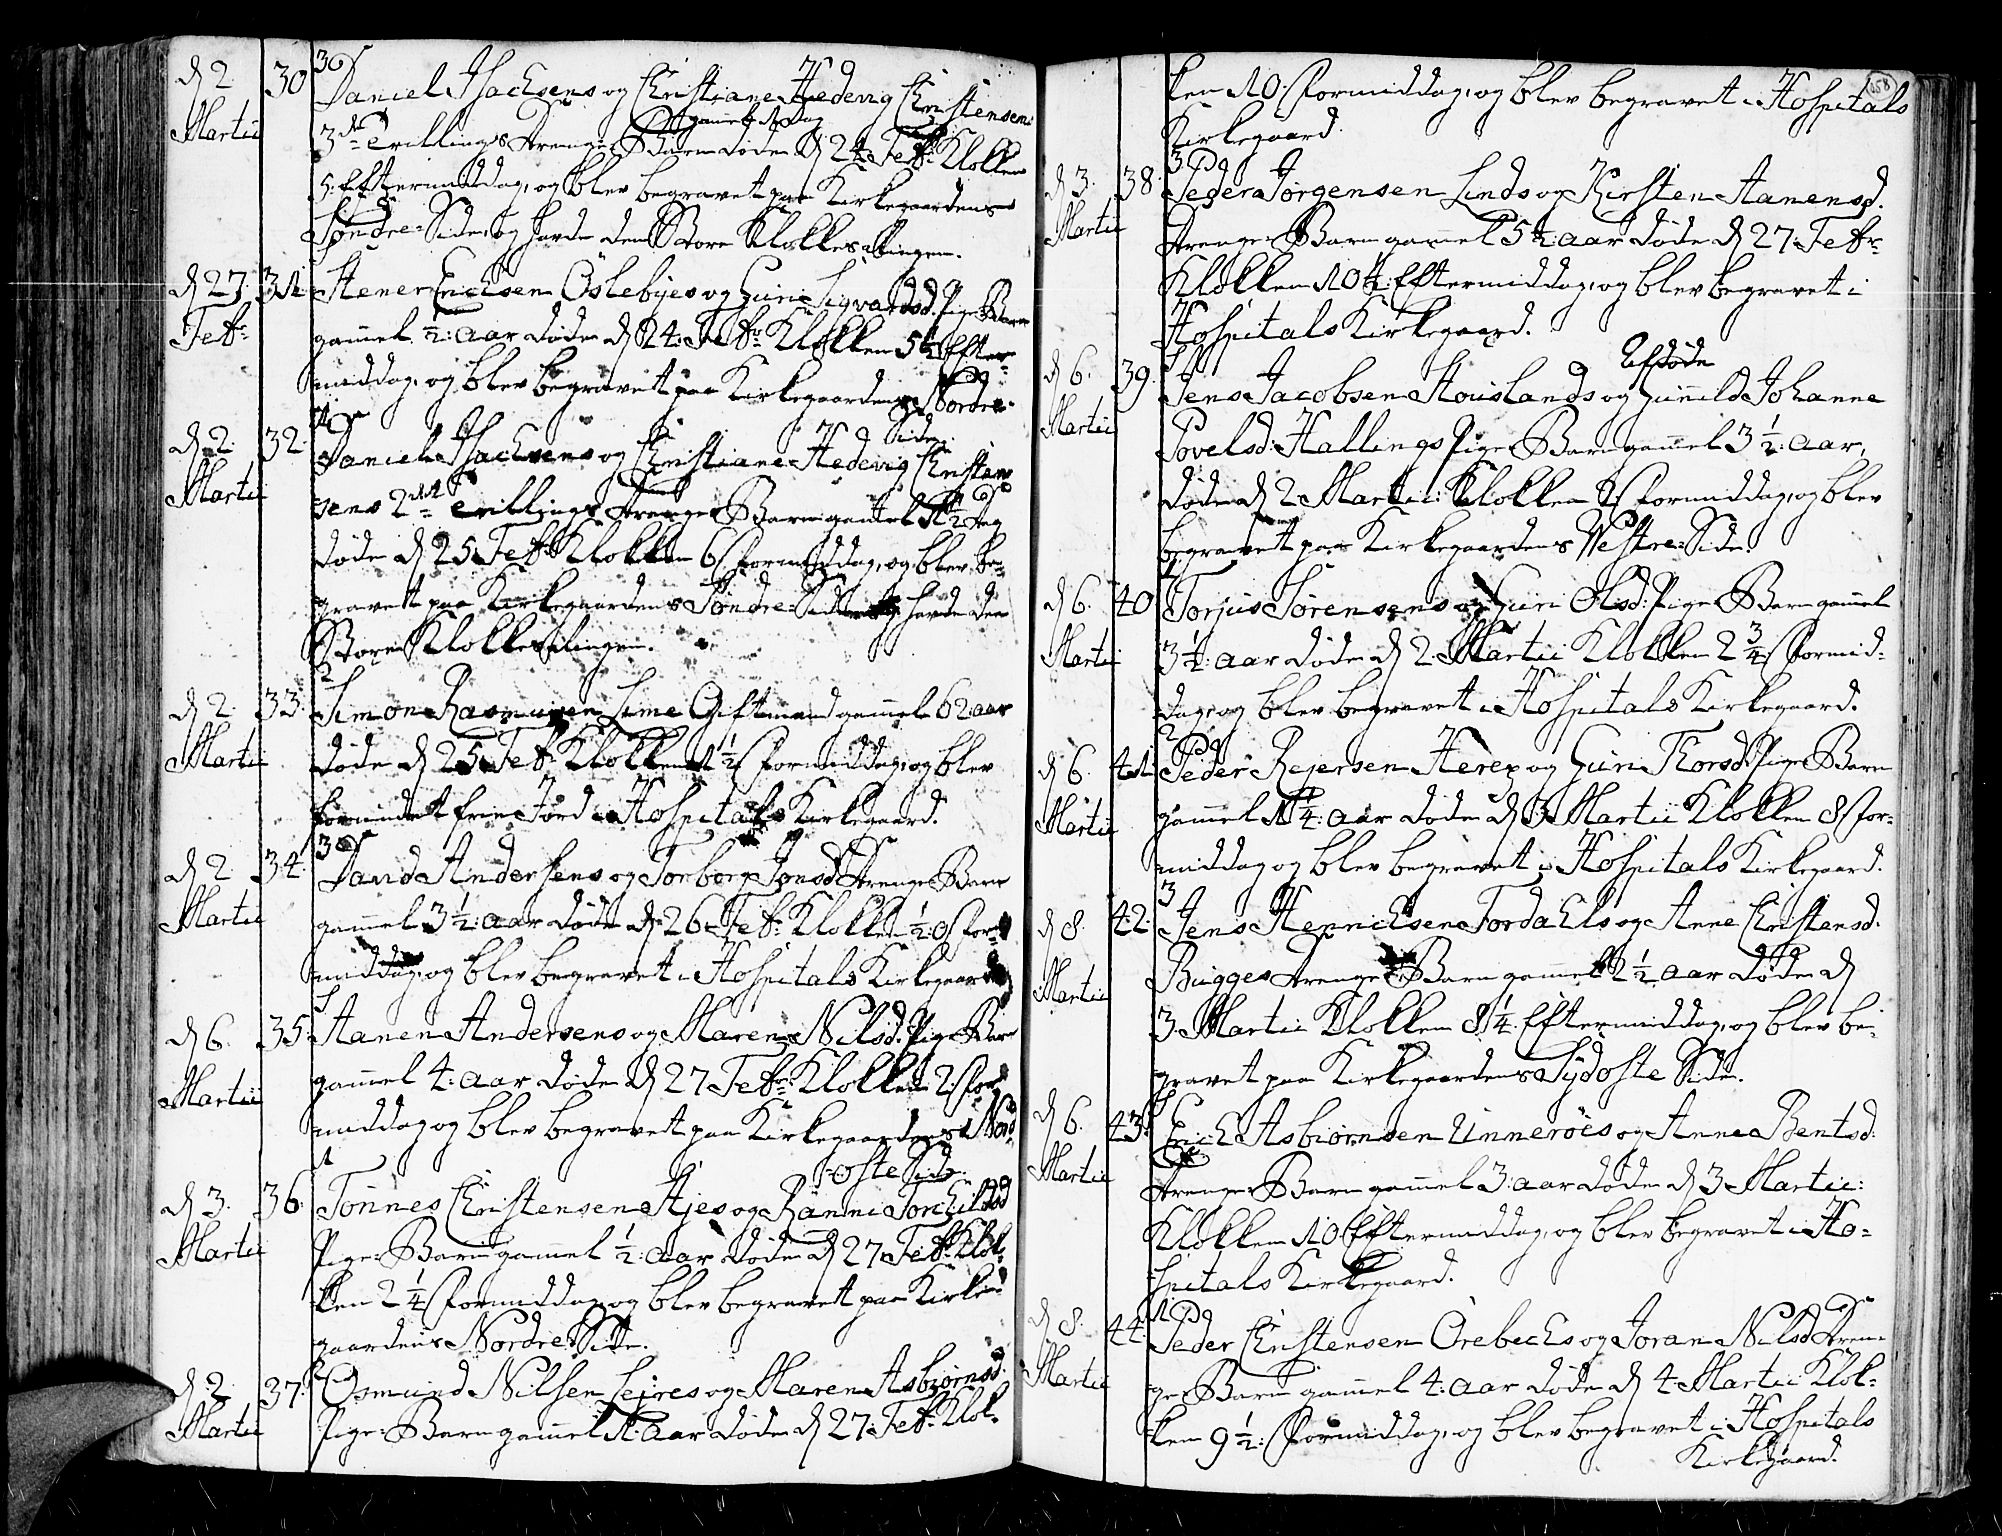 d 2 30 Daniel Isachsens og Christiane Hedevig Christensens
Martii 3de Trillings Drenge Barn gammel 1 Dag døde d 24 Febr: Klokken
5. Eftermiddag, og blev begravet paa Kirkegaardens
Søndre Side, og havde den Store Klokkes Ringen.
d 27. 31. Stener Erichsen Oslebyes og Guri Sigvardsd. Pige Barn
Febr: gammel ½: aar døde d 24. Febr: Klokken 5½ Efter-
middag, og blev begravet paa Kirkegaardens Nordre
Side.
d 2. 32. Daniel Isachsens og Christiane Hedevig Christen-
Martii sens 2den Trillings Drenge Barn gammel 1½ Dag
døde d 25 Febr: Klokken 6 Formiddag, og blev be-
gravet paa Kirkegaardens Søndre Side og havde den
Store Klokkes Ringen.
d 2. 33. Simon Rasmusen Lime Gift mand gammel 62 aar
Martii døde d 25 Febr: Klokken 1½ Formiddag, og blev
forundet frie Jord i Hospitals Kirkegaard.
d 2. 34. David Andersens og Torborg Jonsd. Drenge Barn
Martii gammel 3½: aar døde d 26 Febr: Klokken ½: 0 For-
middag, og blev begravet i Hospitals Kirkegaard
d 6. 35. Aanen Andersens og Maren Nilsd. Pige Barn
Martii gammel 4: aar døde d 27 Febr: Klokken 2: For-
middag og blev begravet paa Kirkegaardens Nord-
oste Side.
d 3. 36. Tonnes Christensen Ajes og Ranni Torchildsd
Martii Pige Barn gammel ½: aar døde d 27 Febr: Klok-
ken 2¼ Formiddag, og blev begravet paa Kirke-
gaardens Nordre Side.
d 2. 37. Osmund Nilsen Lejres og Maren Asbjørnsd.
Martii Pige Barn gammel 1: aar døde d 27. Febr: Klok-
ken 10. Formiddag, og blev begravet i Hospitals
Kirkegaard.
d 3. 38. Peder Jørgensen Linds og Kirsten Aanensd.
Martii Drenge Barn gammel 5½: aar døde d 27. Febr:
Klokken 10½: Eftermiddag, og blev begravet i
Hospitals Kirkegaard.
Afdøde
d 6. 39. Jens Jacobsen Houslands og Gunnild Johanne
Martii Povelsd: Hallings Pige Barn gammel 3½: aar,
døde d 2 Martii: Klokken Formiddag, og blev
begravet paa Kirkegaardens Vestre Side.
d 6. 40 Torjus Sørensens og Guri Olsd: Pige Barn gammel
Martii 3½: aar døde d 2. Martii Klokken 2¾ Formid-
dag, og blev begravet i Hospitals Kirkegaard.
d 6. 41. Peder Rejersen Herex og Guri Thorsd. Pige Barn
Martii gammel 1¼: aar døde d 3 Martii Klokken 8 For-
middag og blev begravet i Hospitals Kirkegaard.
d 8. 42. Jens Hennichsen Fordaels og Anne Christensd.
Martii Bugges Drenge Barn gammel 2½ aar døde d
3. Martii Klokken 8¼. Eftermiddag, og blev be-
gravet paa Kirkegaardens Sydoste Side.
d 6. 43. Erich Asbiørnsen Unnerøes og Anne Bentsd.
Martii Drenge Barn gammel 3: aar døde d 3 Martii:
Klokken 10 Eftermiddag, og blev begravet i Ho-
spitals Kirkegaard.
d 8. 44. Peder Christensen Orebechs og Joran Nilsd Dren-
Martii ge Barn gammel 4: aar døde d 4 Martii Klok-
ken 9½: Formiddag, og blev begravet i Hospitals
Kirkegaard.